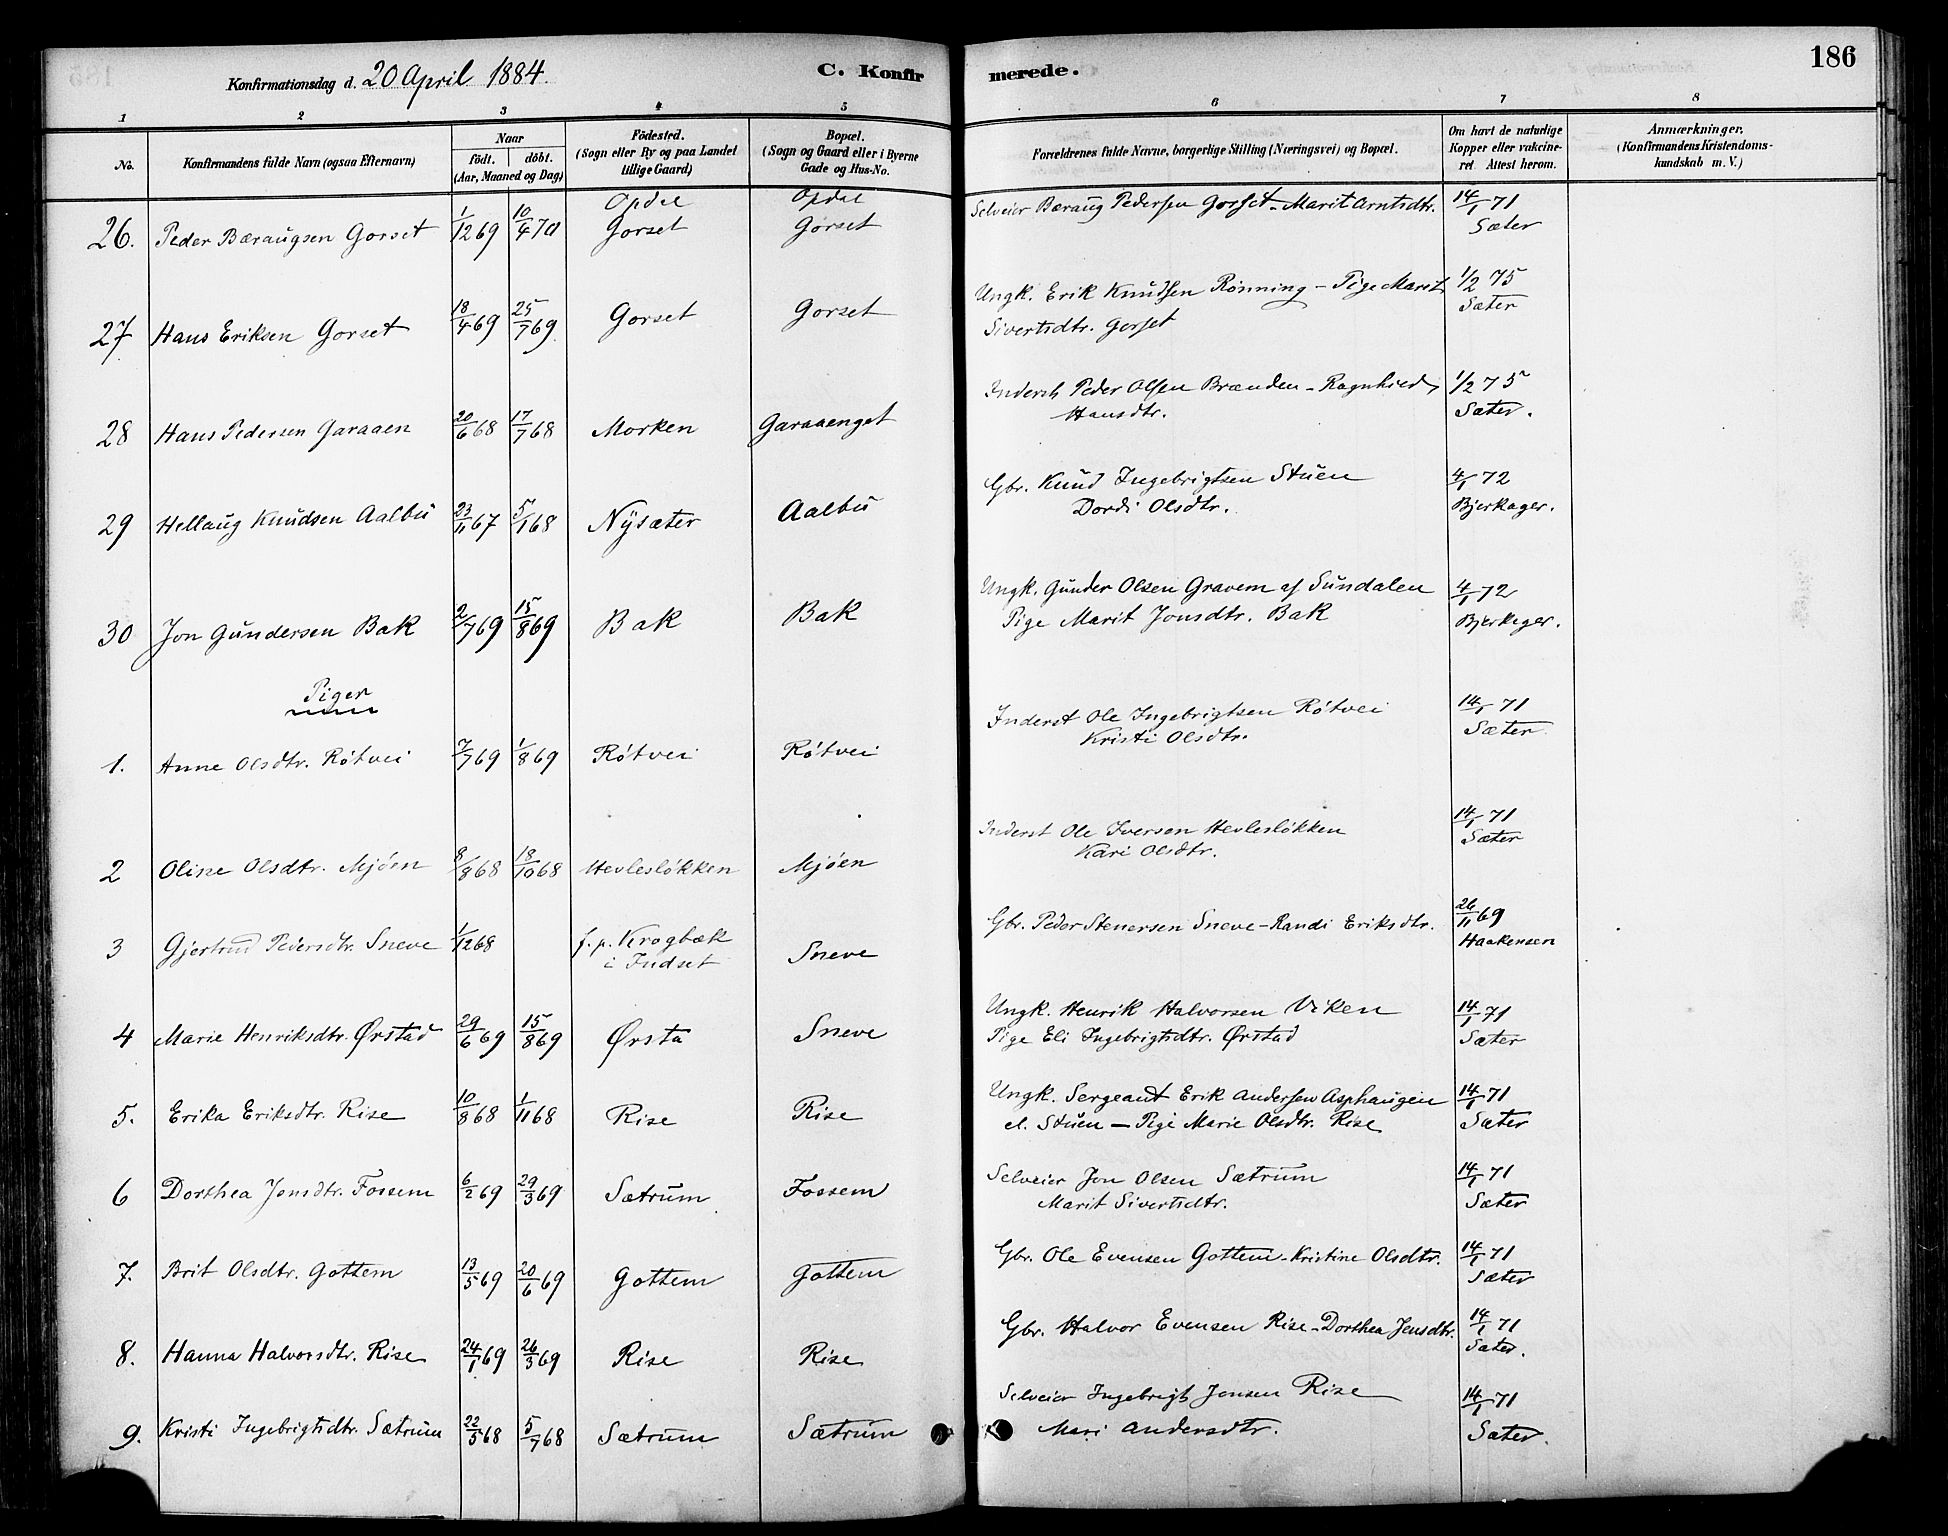 Konfirmationsdag d. 20 April 1884.
C. Konfirmerede.
186
1 2 3 4 5 6 7 8
No.
Konfirmandens fulde Navn (ogsaa Efternavn)
Naar
födt. döbt.
(Aar, Maaned og Dag)
Födested.
(Sogn eller By og paa Landet
tillige Gaard)
Bopæl.
(Sogn og Gaard eller i Byerne
Gade og Hus-No.
Forældrenes fulde Navne, borgerlige Stilling (Næringsvei) og Bopæl.
Om havt de naturlige
Kopper eller vakcine-
ret. Attest herom.
Anmærkninger.
(Konfirmandens Kristendoms-
kundskab m. V.)
Opdal Opdal
26. Peder Bæraugsen Gorset 1/12 69 10/4 70 Gorset Gorset Selveier Bæraug Pedersen Gorset - Marit Arntsdtr. 14/1 71
Sæter
27 Hans Eriksen Gorset 18/4 69 25/7 69 Gorset Gorset Ungk. Erik Knudsen Rönning - Pige Marit 1/2 75
Sivertsdtr. Gorset Sæter
28 Hans Pedersen Garaaen 20/6 68 17/7 68 Morken Garaaenget Inderst Peder Olsen Brænden - Ragnhild 1/2 75
Hansdtr. Sæter.
29 Hellaug Knudsen Aalbu 23/11 67 5/1 68 Nysæter Aalbu Gbr. Knud Ingebrigtsen Stuen 4/1 72
Dordi Olsdtr. Bjerkager.
30 Jon Gundersen Bak 2/7 69 15/8 69 Bak Bak Ungk. Gunder Olsen Gravem af Sundalen 4/1 72
Pige Marit Jonsdtr. Bak Bjerkager.
Piger
1. Anne Olsdtr. Rötvei 7/7 69 1/8 69 Rötvei Rötvei Inderst Ole Ingebrigtsen Rötvei 14/1 71
Kristi Olsdtr. Sæter
2 Oline Olsdtr. Mjöen 8/8 68 18/10 68 Hevleslökken Mjöen Inderst Ole Iversen Hevleslökken 14/1 71
Kari Olsdtr. Sæter
3 Gjertrud Pedersdtr. Sneve 1/12 68 f. p. Krogbæk Sneve Gbr. Peder Stenersen Sneve - Randi Eriksdtr. 26/11 69
i Indset Haakensen
4 Marie Henriksdtr. Ørstad 29/6 69 15/8 69 Ørsta Sneve Ungk. Henrik Halvorsen Viken 14/1 71
Pige Eli Ingebrigtsdtr. Ørstad Sæter
5. Erika Eriksdtr. Rise 10/8 68 1/11 68 Rise Rise Ungk. Sergeant Erik Andersen Asphaugen 14/1 71
el. Stuen - Pige Marie Olsdtr. Rise Sæter
6 Dorthea Jonsdtr. Fossem 6/2 69 29/3 69 Sætrum Fossem Selveier Jon Olsen Sætrum 14/1 71
Marit Sivertsdtr. Sæter
7. Brit Olsdtr. Gottem 13/5 69 20/6 69 Gottem Gottem Gbr. Ole Evensen Gottem - Kristine Olsdtr. 14/1 71
Sæter
8. Hanna Halvorsdtr. Rise 24/1 69 26/3 69 Rise Rise Gbr. Halvor Evensen Rise - Dorthea Jensdtr. 14/1 71
Sæter.
9. Kristi Ingebrigtsdtr. Sætrum 22/5 68 5/7 68 Sætrum Sætrum Selveier Ingebrigt Jonsen Rise 14/1 71
Mari Andersdtr. Sæter.